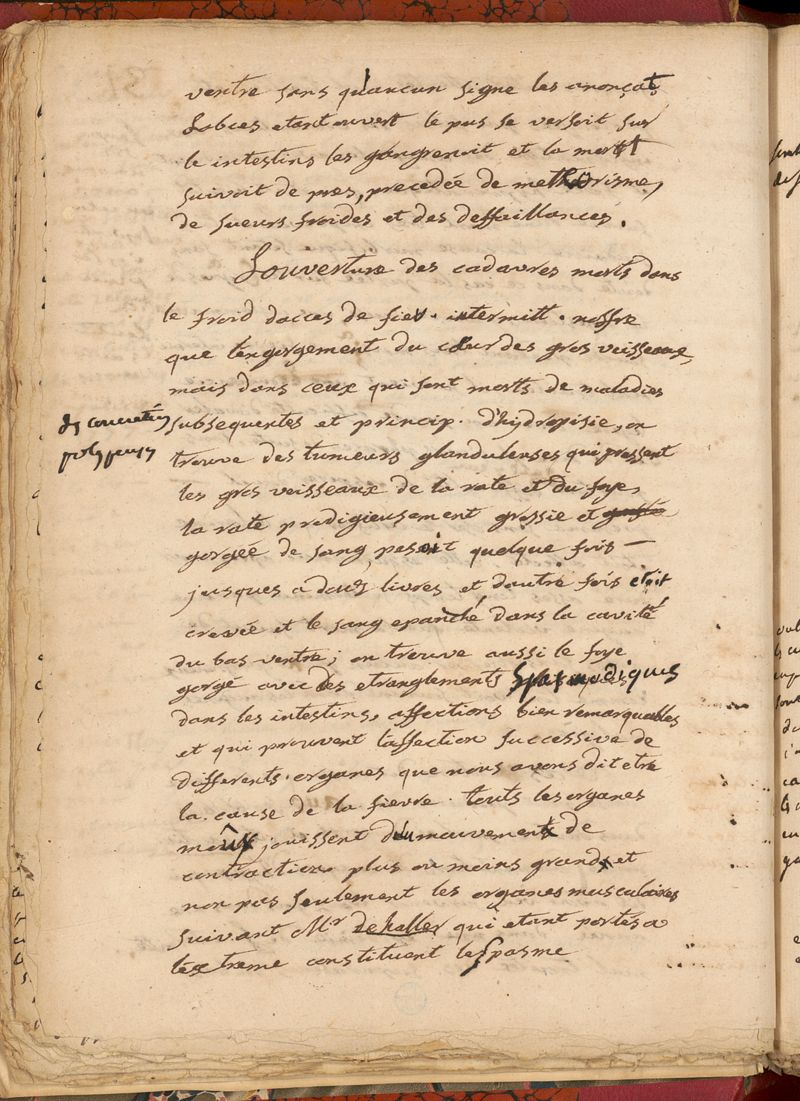 ventre sans qu'aucun signe les anonçat,
Labces etant ouvert le pus se versoit sur
le intestins les gangrenoit et la mort
suivoit de pres, precedée de metheorisme,
de sueurs froides et des deffaillances.
Louverture des cadavres morts dans
le froid dacces de fiev. intermitt. noffre
que lengorgement du cœur des gros veisseaux,
mais dans ceux qui sont morts de maladies
subsequentes et princip. d'hydropisie, on
des concretions
polypeuses
trouve des tumeurs glanduleuses qui pressent
les gros veisseaux de la rate et du foye,
la rate prodigieusement grossie et
gorgée de sang, pesoit quelque fois —
jusques a douz livres et dautre fois etoit
crevée et le sang epanché dans la cavité
du bas ventre; on trouve aussi le foye
gorgé avec des etranglements spasmodiques
dans les intestins, affections bien remarquables
et qui prouvent laffection successive de
differents organes que nous avons dit etre
la cause de la fievre. touts les organes
jouissent d'un mouvement de
contraction plus ou moins grand et
non pas seulement les organes musculaires
suivant Mr dehaller qui etant portés a
lextreme constituent le spasme